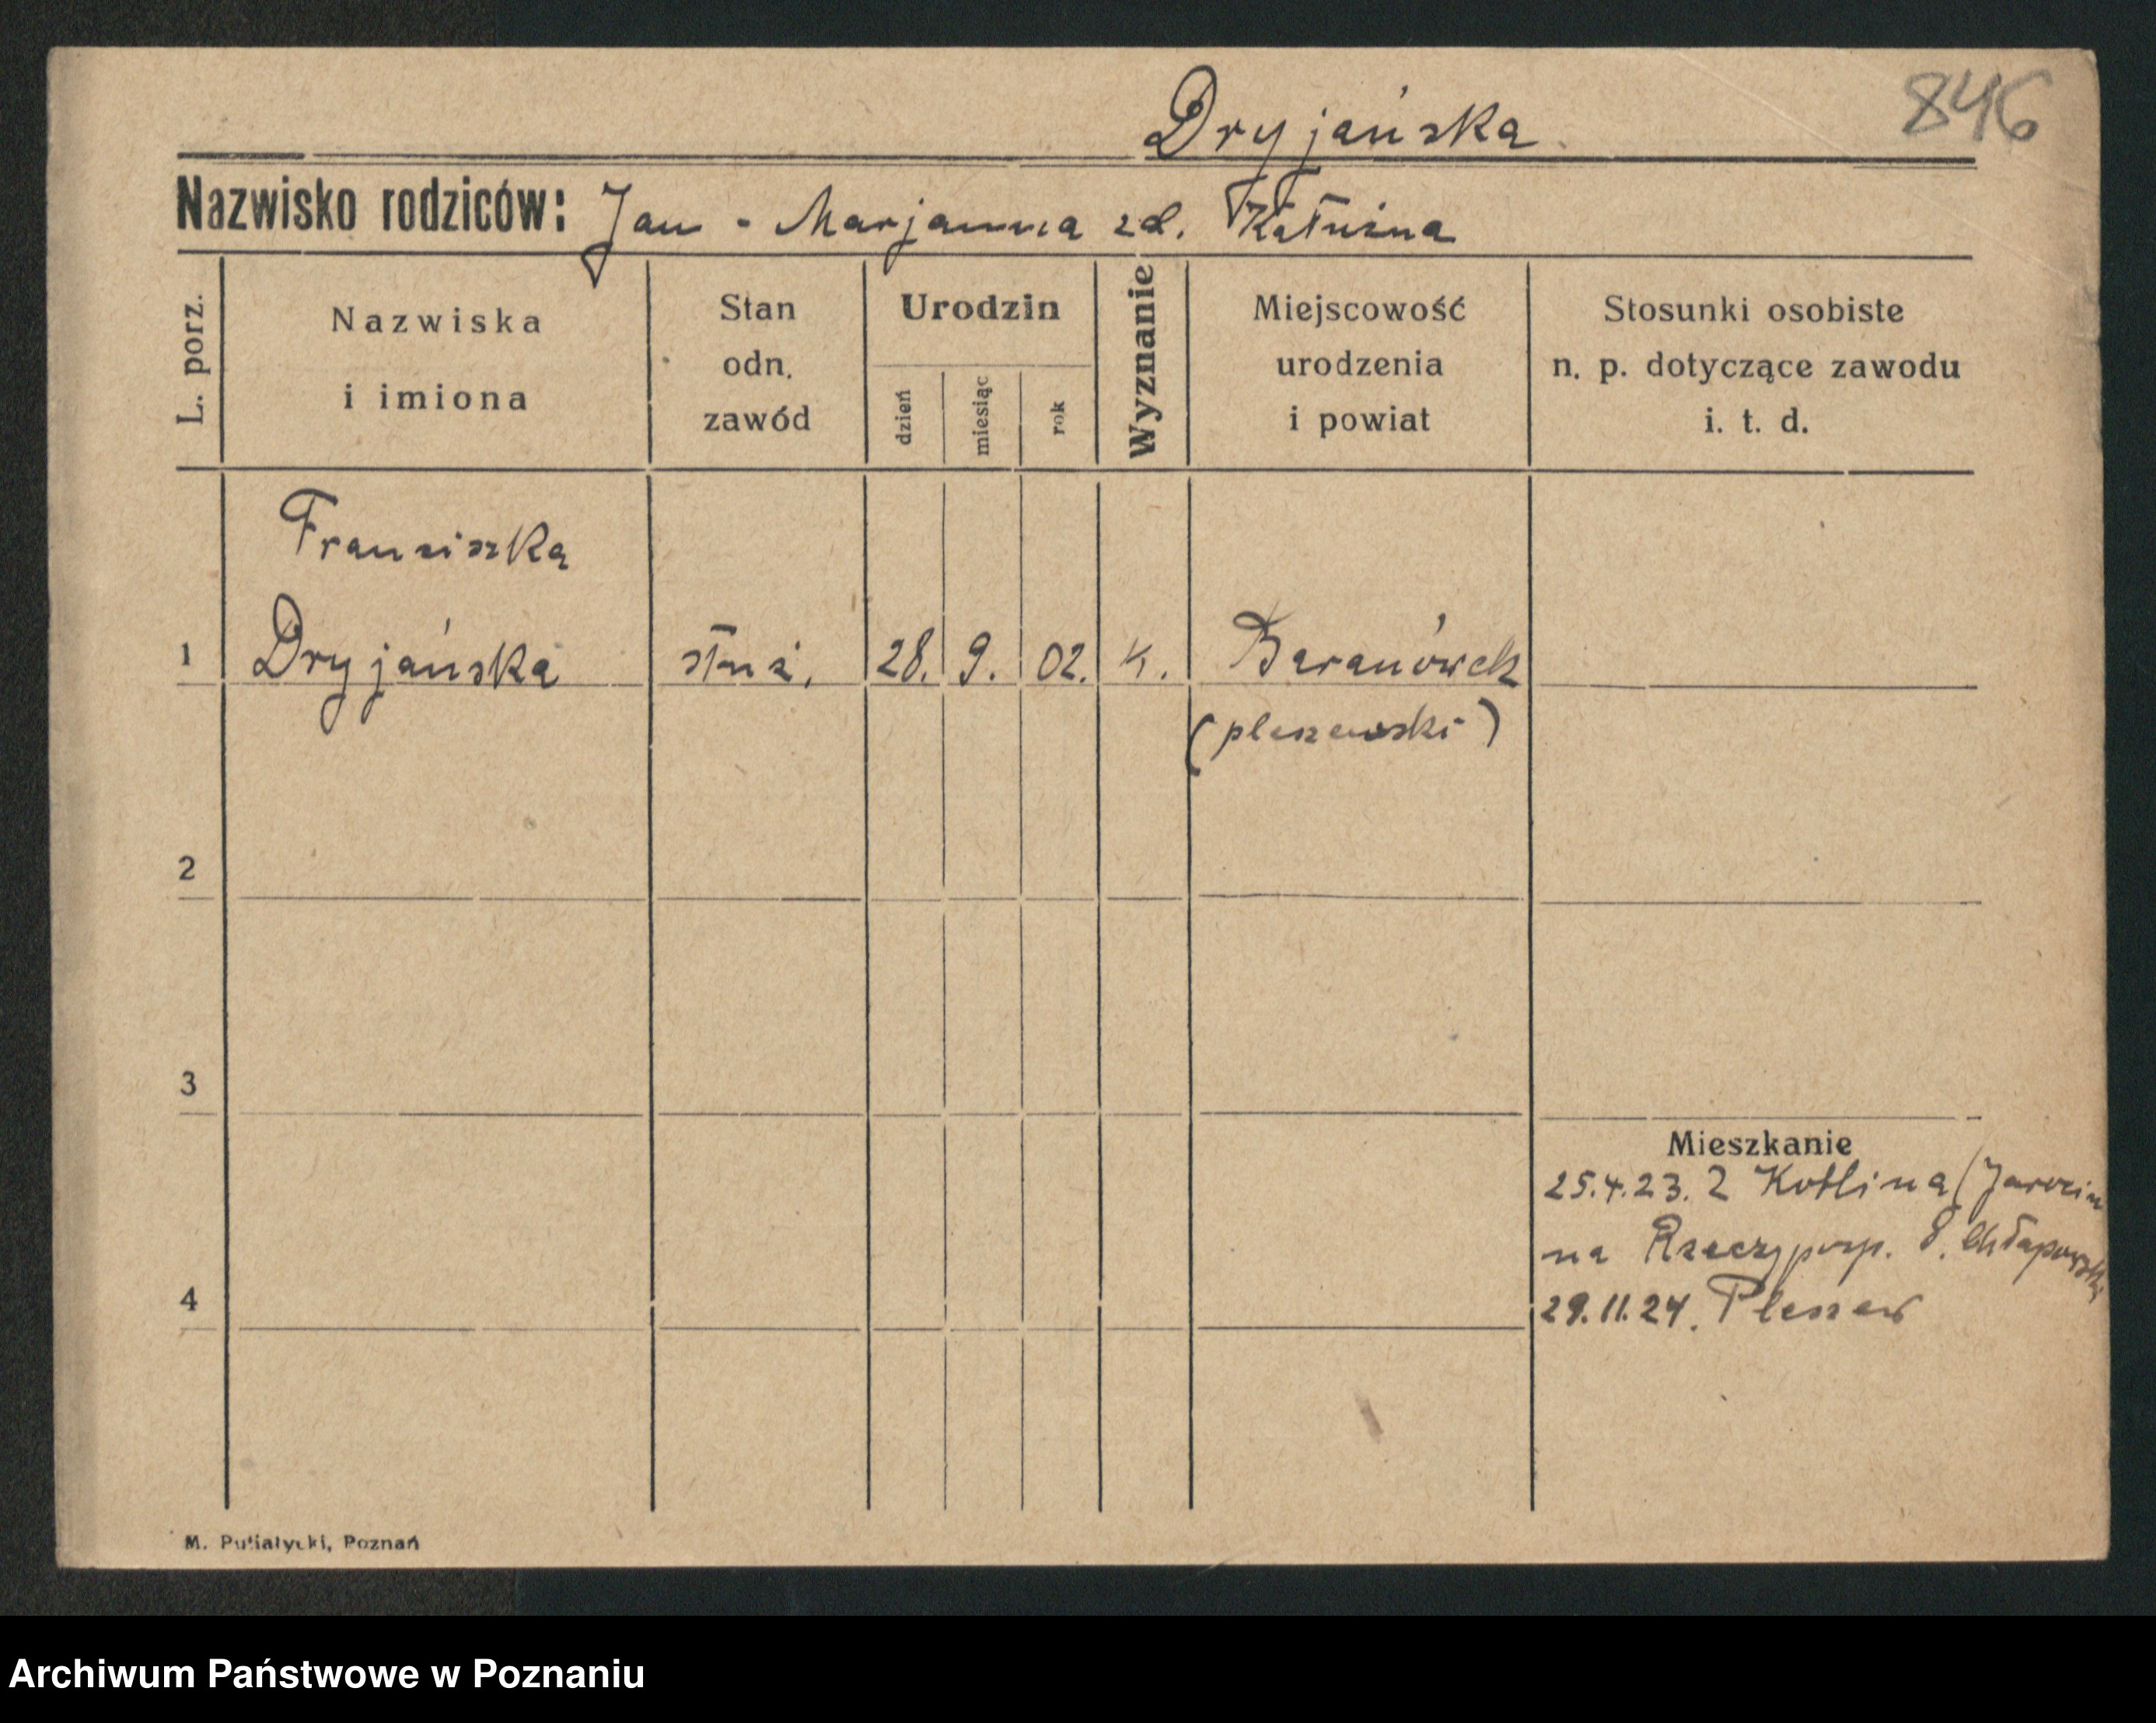 846
Dryjańska
Nazwisko rodziców: Jan - Marjanna zd. Kałużna
L. porz.
Nazwiska
i imiona
Stan
odn.
zawód
Urodzin
dzień
miesiąc
rok
Wyznanie
Miejscowość
urodzenia
i powiat
Stosunki osobiste
n. p. dotyczące zawodu
i. t. d.
Franciszka
1 Dryjańska służ. 28. 9. 02. k. Baranówek
(pleszewski)
2
3
Mieszkanie
25.4.23. Z Kotlina (Jarocin
na Rzeczyposp. 8. Chłapowski
4
29.11.24. Pleszew
M. Putiatycki, Poznań
Archiwum Państwowe w Poznaniu